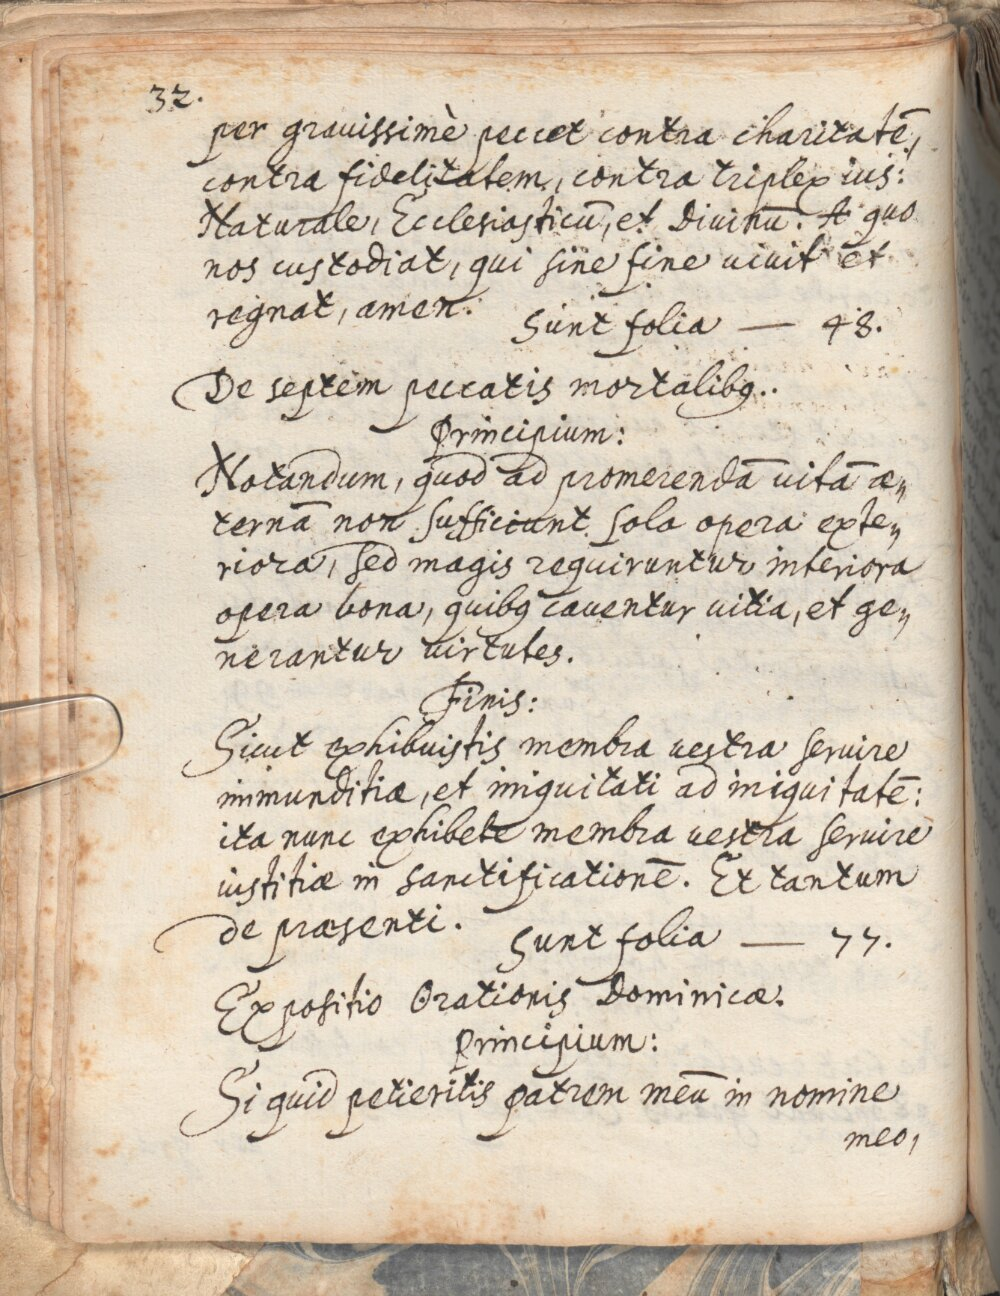 32.
per grauissimè peccet contra charitatē,
contra fidelitatem, contra triplex ius:
Naturale, Ecclesiasticū, et Diuinū. A quo
nos custodiat, qui sine fine uiuit et
regnat, amen.
Sunt folia — 48.
De septem peccatis mortalibꝯ.
Principium:
Notandum, quod ad promerendā uitā æ„
ternā non sufficiunt sola opera exte„
riora, sed magis requiruntur interiora
opera bona, quibꝯ cauentur uitia, et ge„
nerantur uirtutes.
Finis:
Sicut exhibuistis membra uestra seruire
immunditiæ, et iniquitati ad iniquitatē:
ita nunc exhibete membra uestra seruire
iustitiæ in sanctificationē. Et tantum
de præsenti.
Sunt folia — 77.
Expositio Orationis Dominicæ.
Principium:
Si quid petieritis patrem meū in nomine
meo,